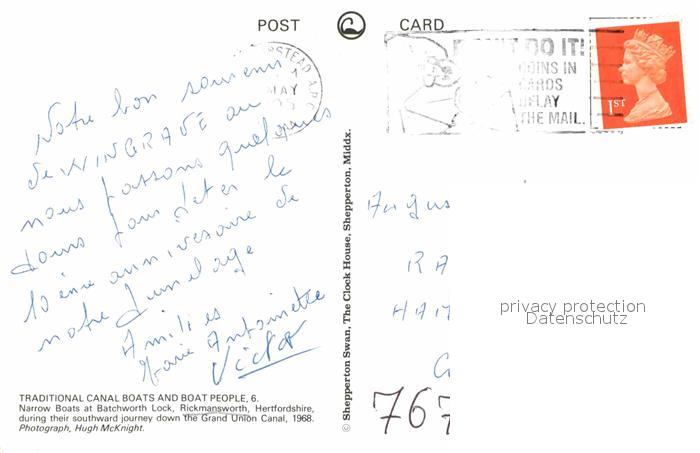 POST CARD
DON'T DO IT!
COINS IN
CARDS
DELAY
THE MAIL.
1ST
MAY
Notre bon souvenir
de WINGRAVE ou
nous passons quelques
jours pour fêter le
10 ème anniversaire de
notre jumelage
Amitiés
Marie Antoinette
Victor
TRADITIONAL CANAL BOATS AND BOAT PEOPLE, 6.
Narrow Boats at Batchworth Lock, Rickmansworth, Hertfordshire,
during their southward journey down the Grand Union Canal, 1968.
Photograph, Hugh McKnight.
© Shepperton Swan, The Clock House, Shepperton, Middx.
RA
HAM
G
767
privacy protection
Datenschutz